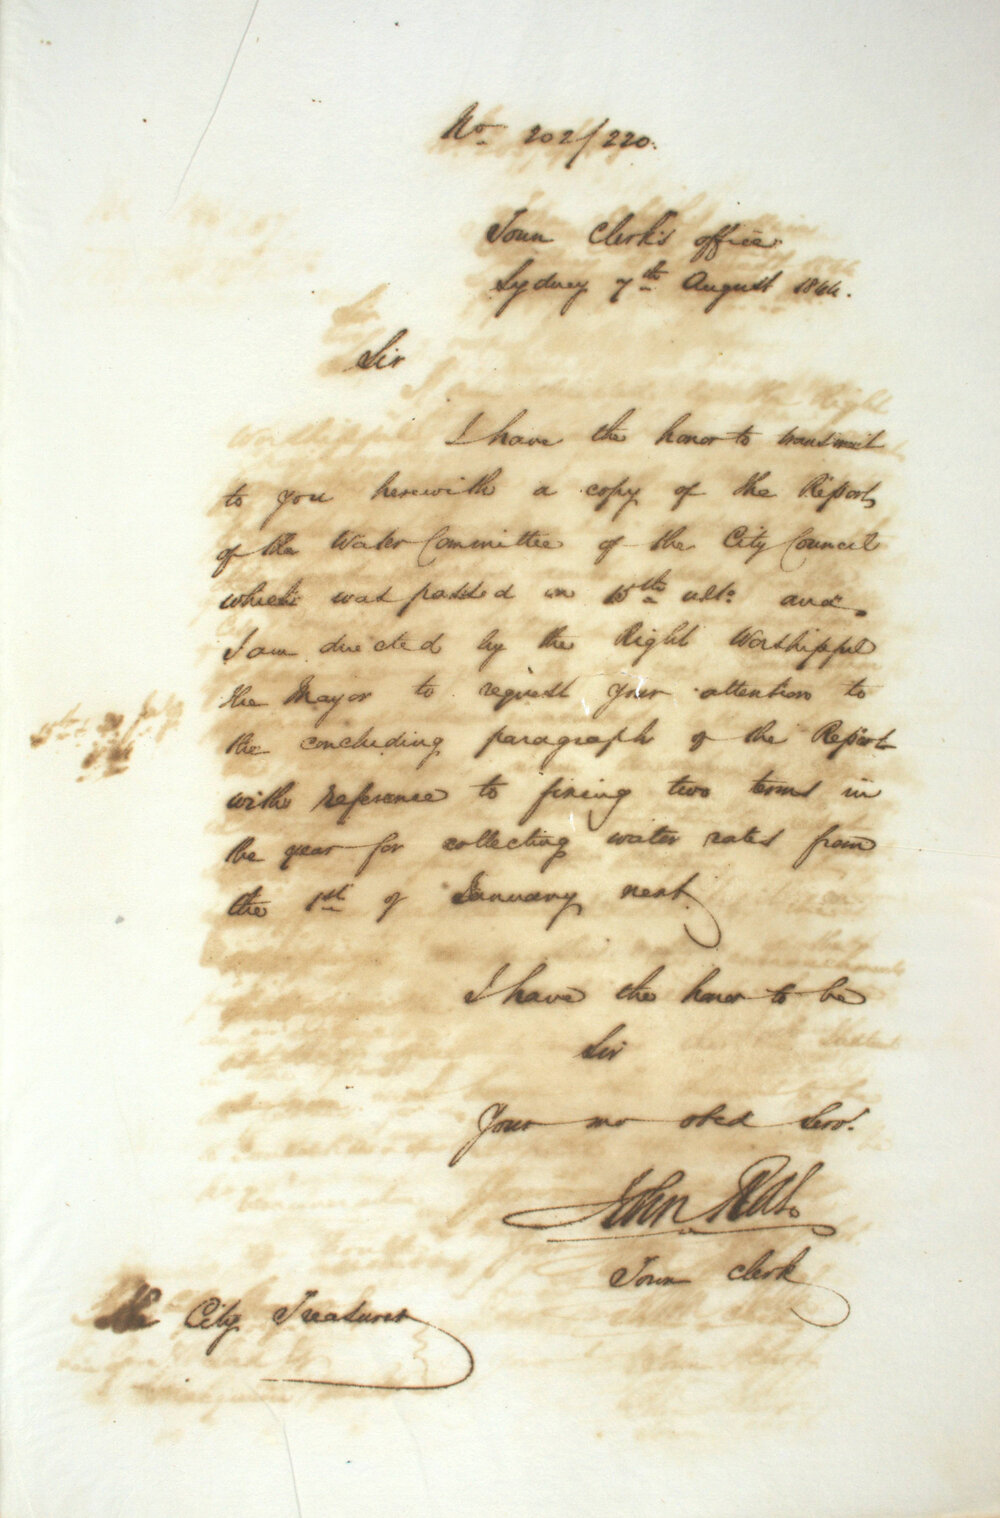 No. 202/220.
Town Clerk's office
Sydney 7th August 1844.
Sir
I have the honor to transmit
to you herewith a copy of the Report
of the Water Committee of the City Council
which was passed on 15th ulto. and
I am directed by the Right Worshipful
the Mayor to request your attention to
the concluding paragraph of the Report
with reference to fixing two terms in
the year for collecting water rates from
the 1st of January next
I have the honor to be
Sir
Your mo obed Servt.
John Rae
Town Clerk
The City Treasurer